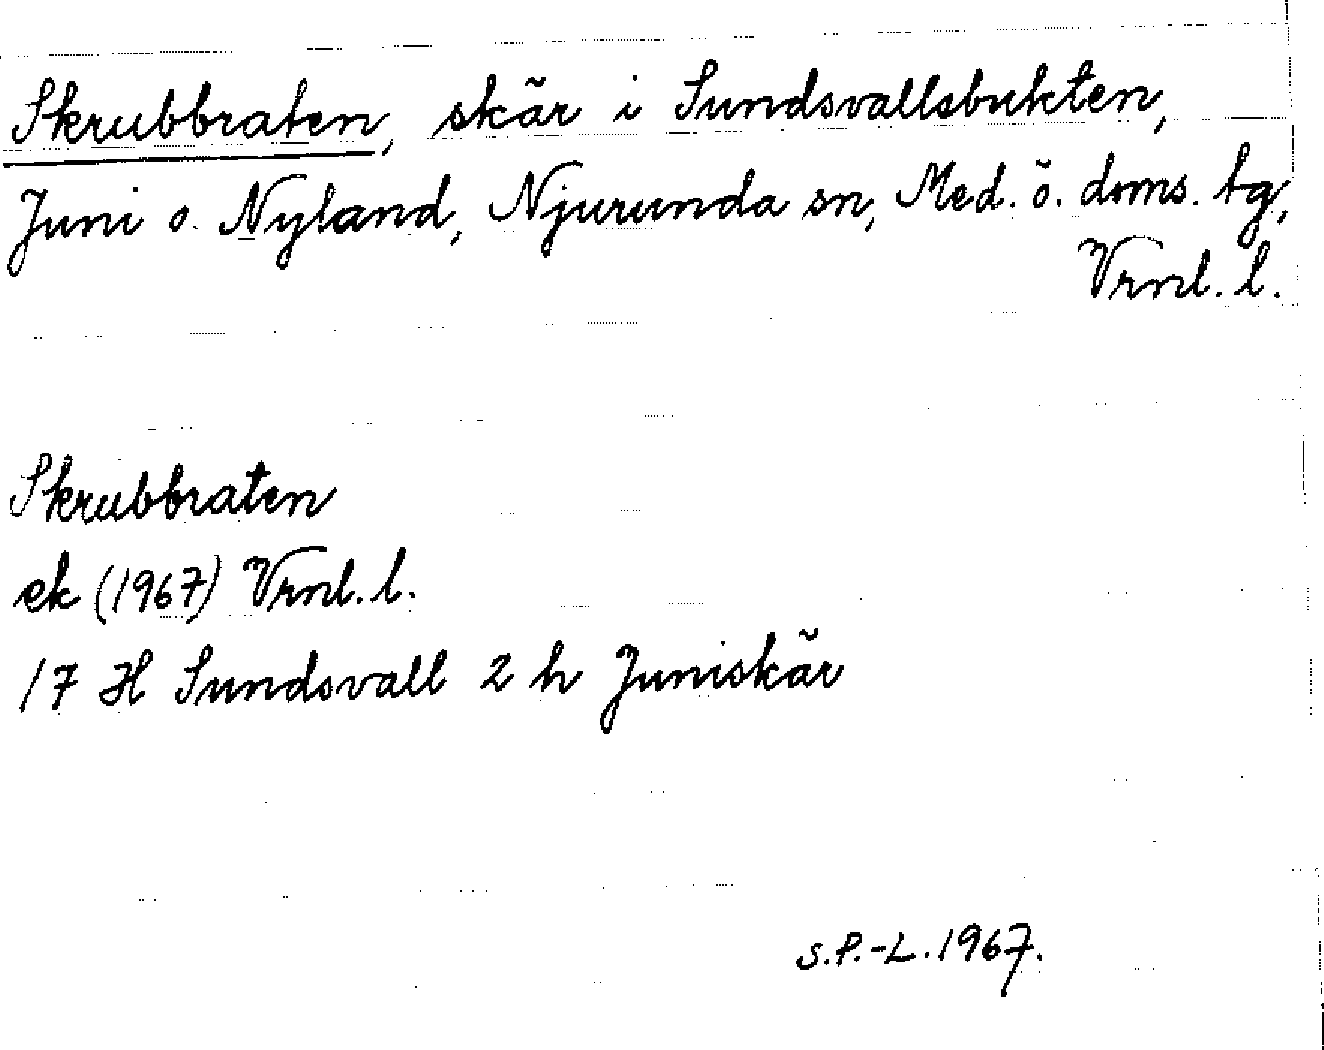 Skrubbraten, skär i Sundsvallsbukten,
Juni o. Nyland, Njurunda sn, Med. ö. doms. tg,
Vrnl. l.
Skrubbraten
ek (1967) Vrnl. l.
17 H Sundsvall 2 h Juniskär
S.P.-L. 1967.